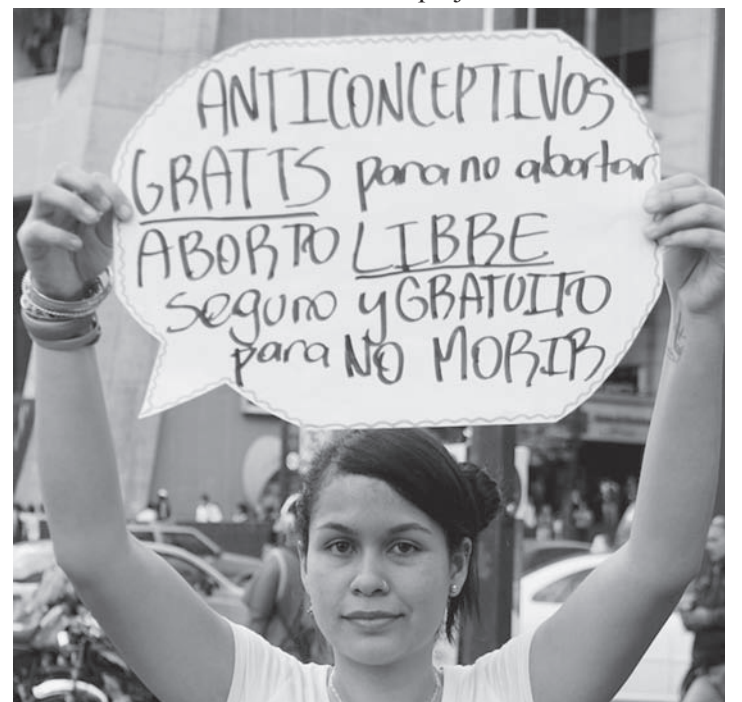 ANTICONCEPTIVOS
GRATIS para no abortar
ABORTO LIBRE
seguro y GRATUITO
para NO MORIR